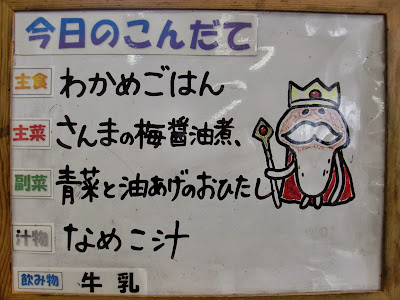 今日のこんだて
主食 わかめごはん
主菜 さんまの梅醤油煮、
副菜 青菜と油あげのおひたし
汁物 なめこ汁
飲み物 牛乳